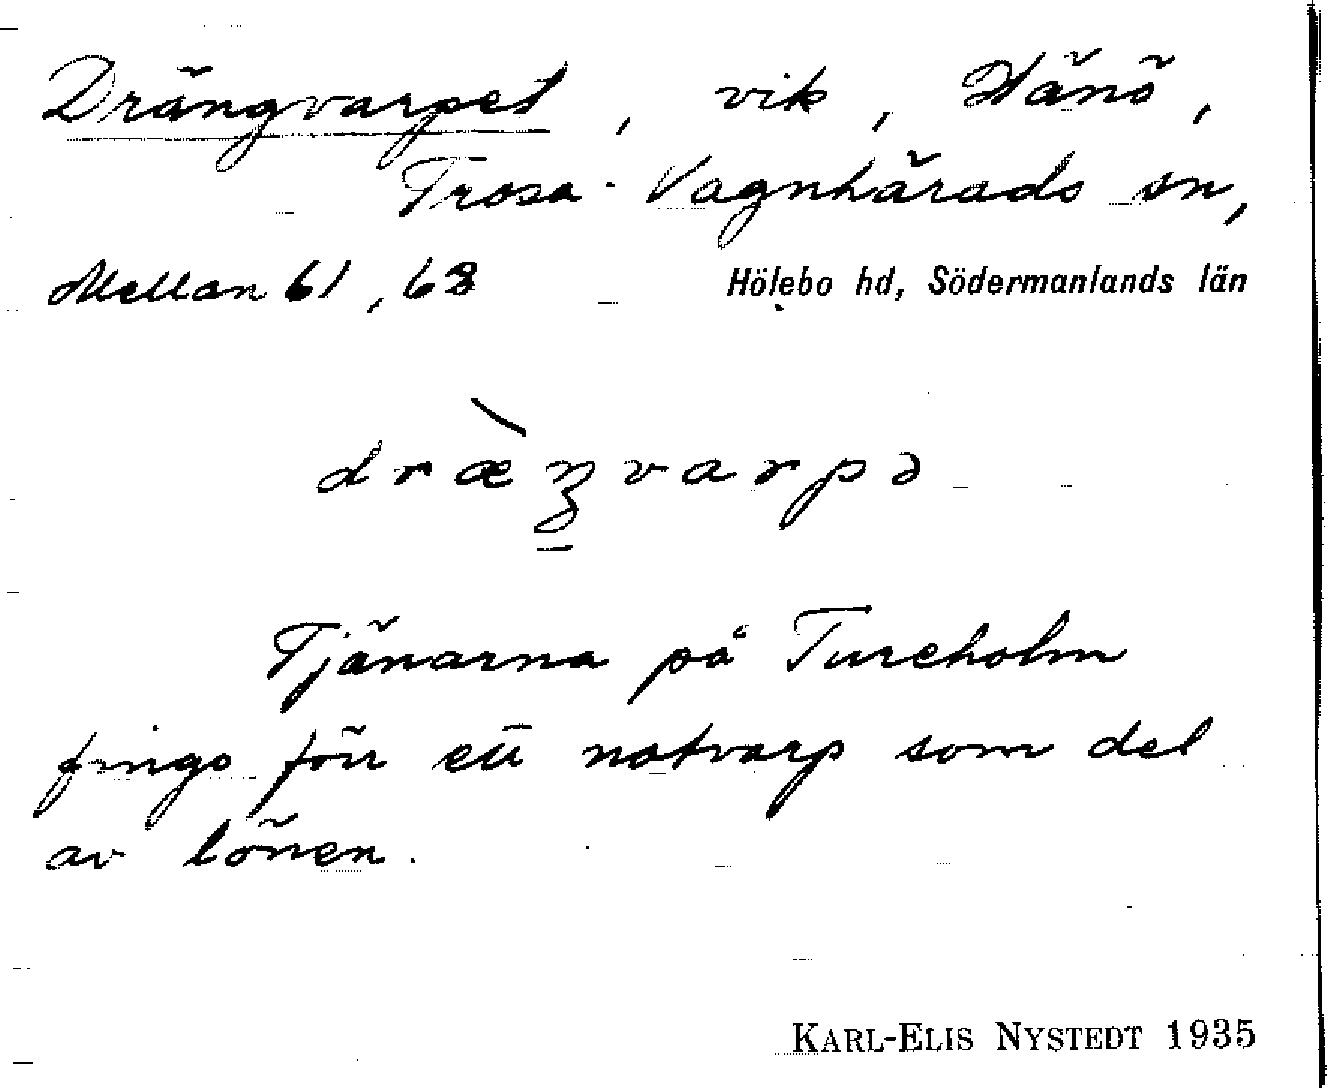 Drängvarpet, vik, Hänö,
Trosa-Vagnhärads sn,
Mellan 61, 63 Hölebo hd, Södermanlands län
dræ̀ŋvarpə
Tjänarna på Tureholm
fingo förr ett notvarp som del
av lönen.
KARL-ELIS NYSTEDT 1935